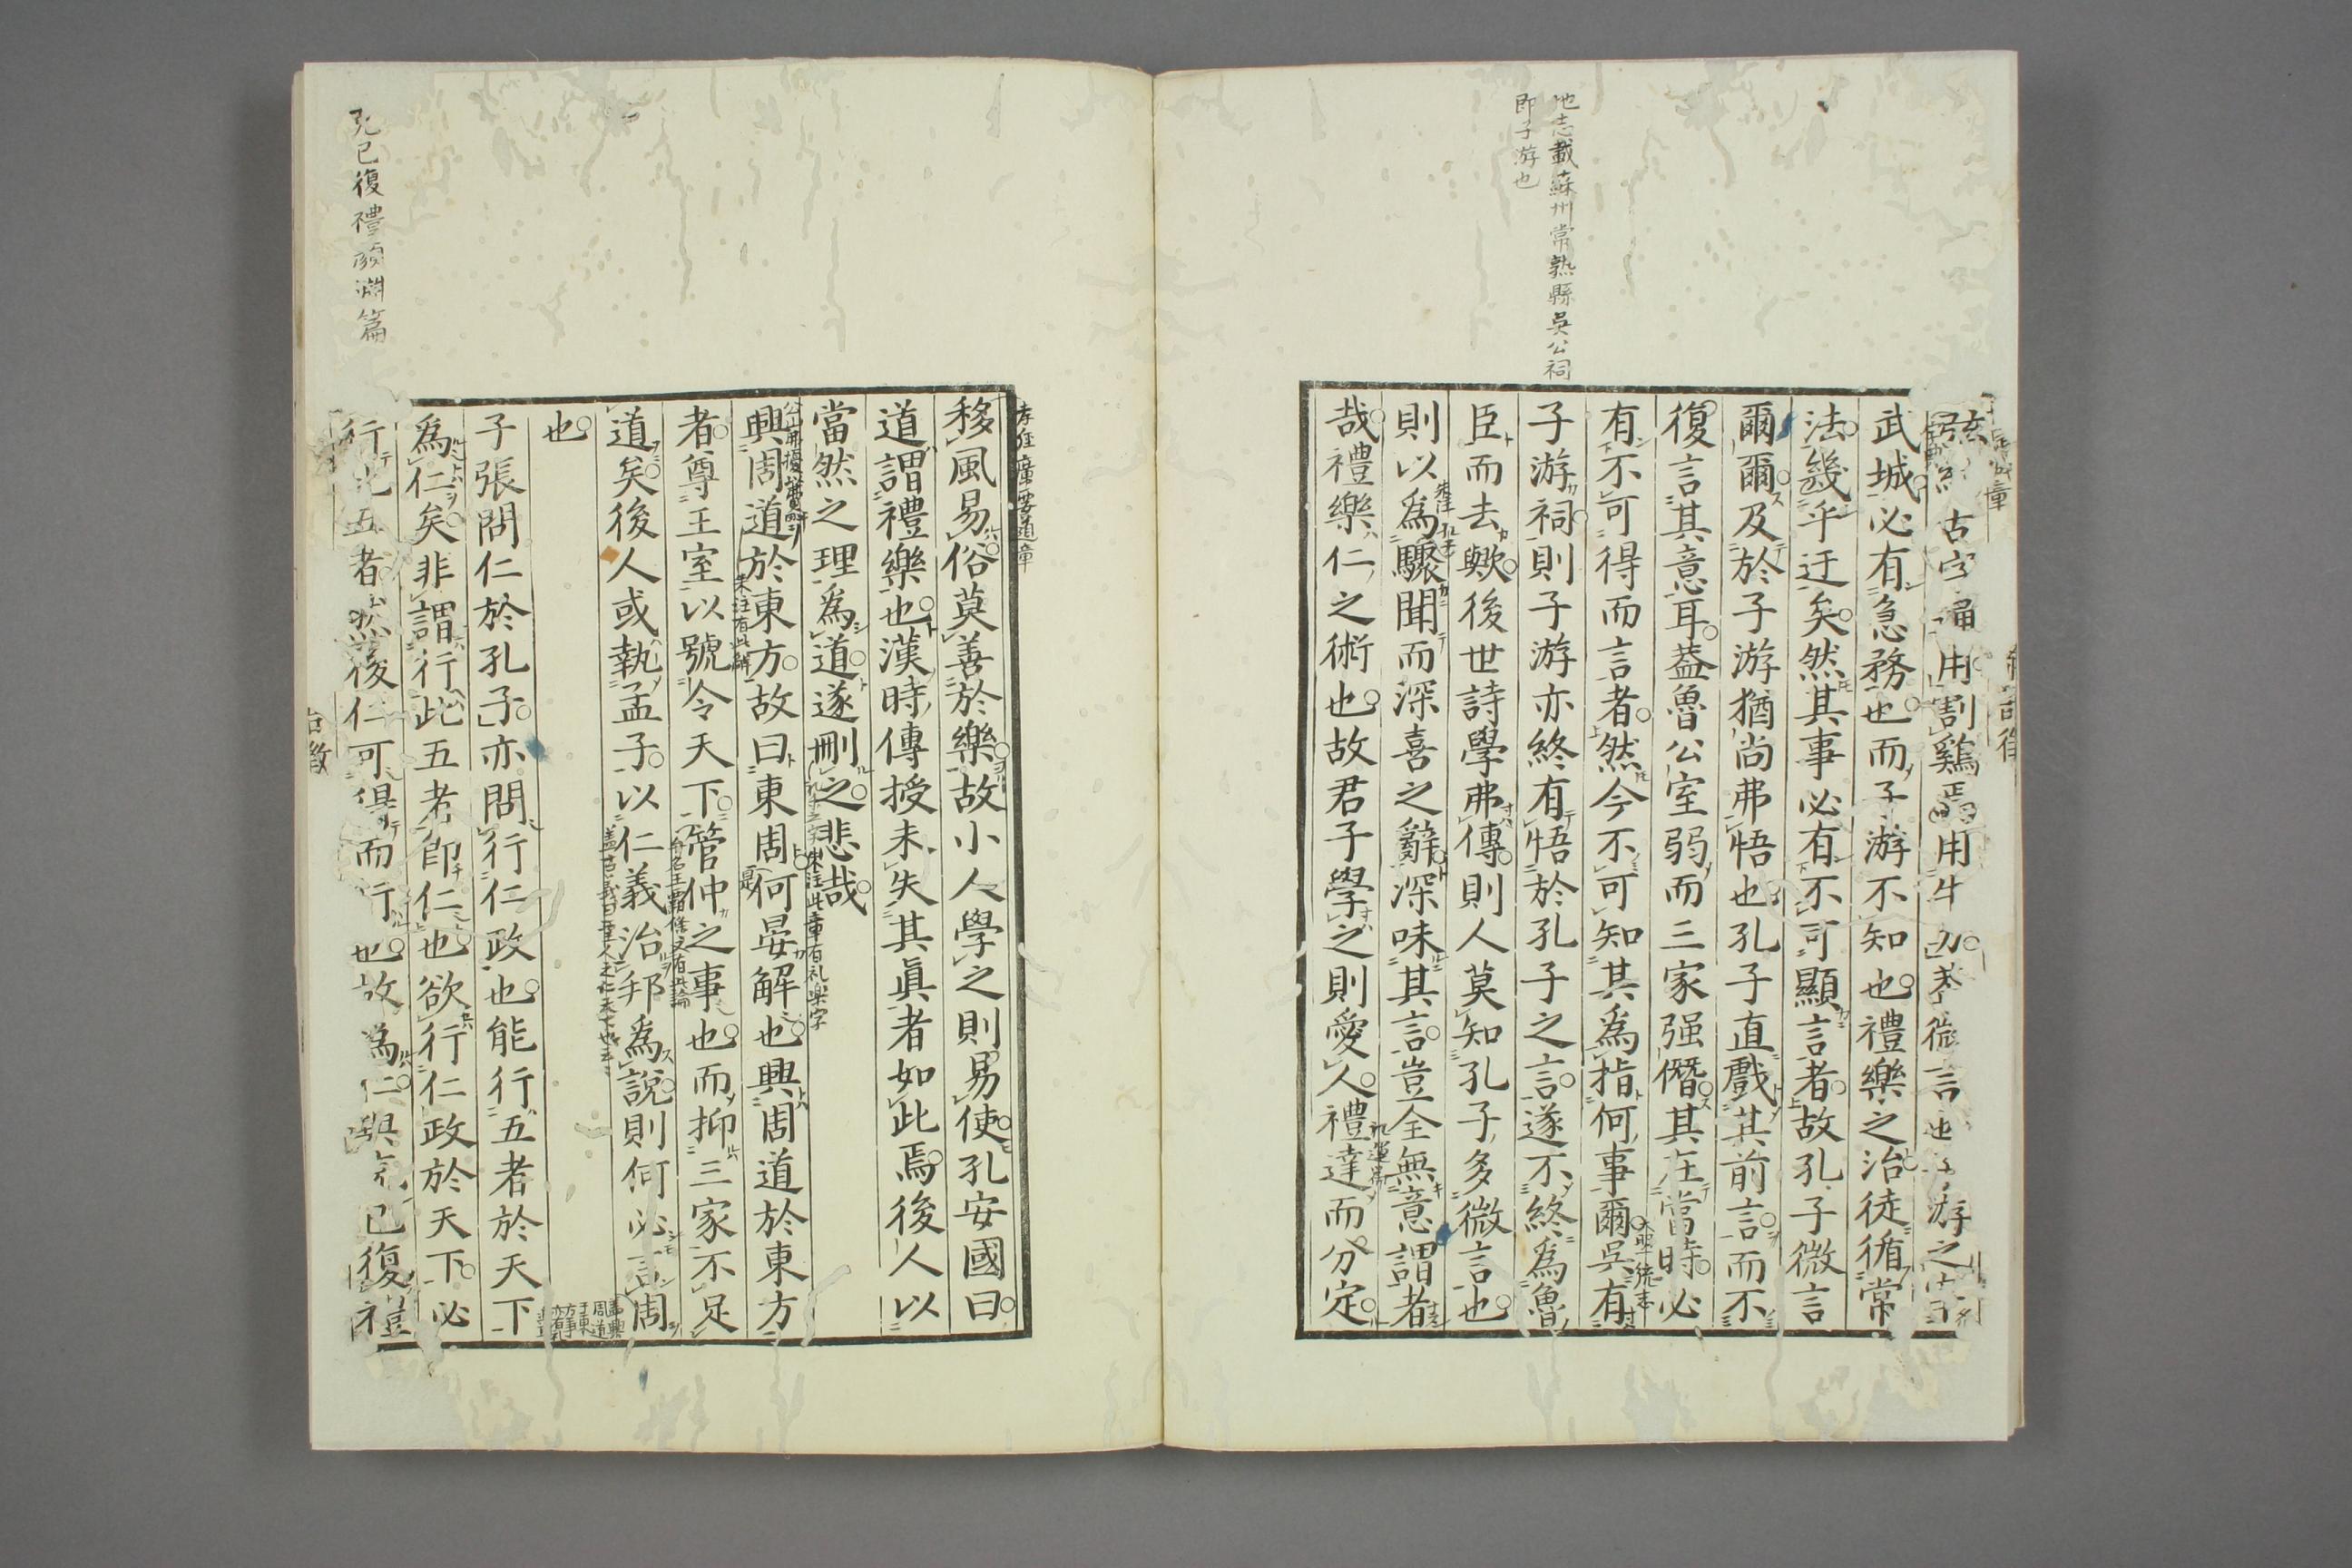 地志載蘇州常熟縣吳公祠
即子游也
弦
古字通用割鷄焉用牛刀
微言也
游之宰
武城必有急務也而子游不知也禮樂之治徒循常
法幾乎迂矣然其事必有不可顯言者故孔子微言
爾爾及於子游猶尚弗悟也孔子直戲其前言而不
復言其意耳葢魯公室弱而三家强僭其在當時必
有不可得而言者然今不可知其為指何事爾吳有
大明一統志
子游祠則子游亦終有悟於孔子之言遂不終為魯
臣而去歟後世詩學弗傳則人莫知孔子多微言也
則以為驟聞而深喜之辭深味其言豈全無意謂者
朱注
哉禮樂仁之術也故君子學之則愛人禮達而分定
孝經廣要道章
移風易俗莫善於樂故小人學之則易使孔安國曰
道謂禮樂也漢時傳授未失其眞者如此焉後人以
當然之理為道遂删之悲哉
朱注此章有礼樂字
公山弗擾
興周道於東方故曰東周何晏解也興周道於東方
朱注有此解
者尊王室以號令天下管仲之事也而抑三家不足
道矣後人或執孟子以仁義治邦為說則何必言周
也
子張問仁於孔子亦問行仁政也能行五者於天下
為仁矣非謂行此五者即仁也欲行仁政於天下必
行此五者然後仁可得而行也故為仁與克己復禮
克已復禮顔淵篇